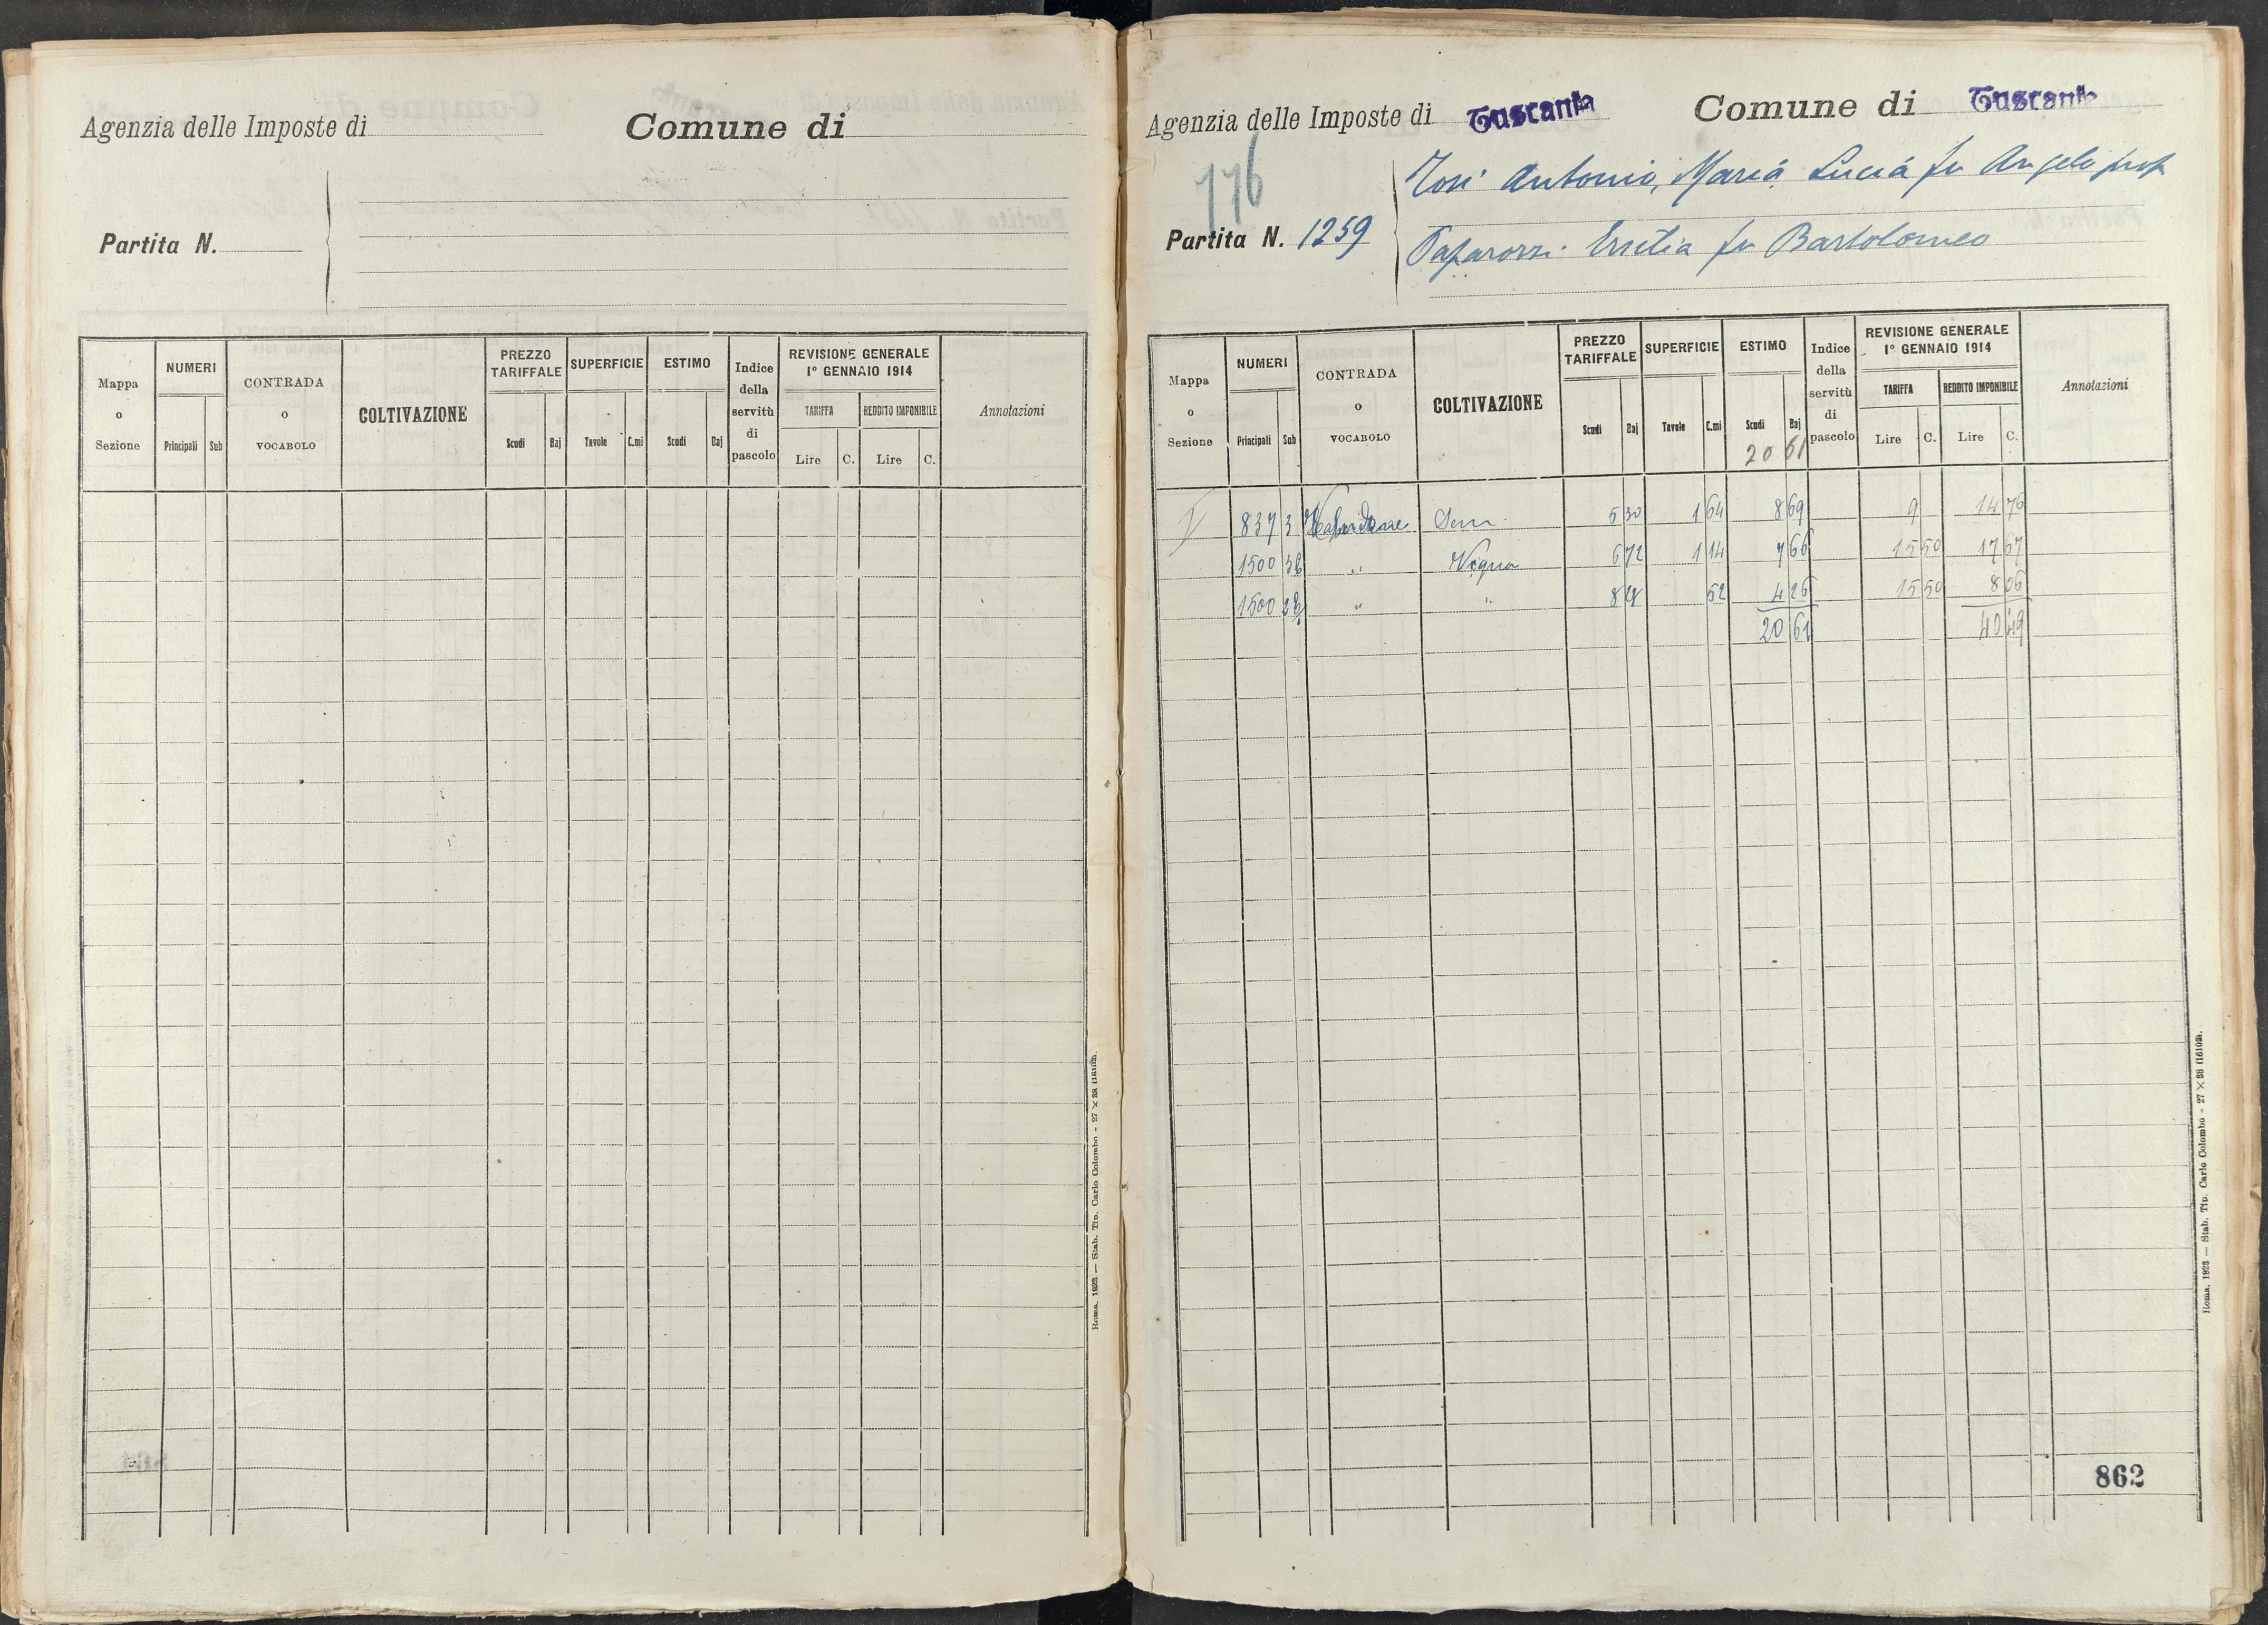 Agenzia delle Imposte di
Comune di
Partita N.
Mappa o Sezione
NUMERI
Principali Sub
CONTRADA o VOCABOLO
COLTIVAZIONE
PREZZO TARIFFALE
Scudi Baj
SUPERFICIE
Tavole C.mi
ESTIMO
Scudi Baj
Indice della servitù di pascolo
REVISIONE GENERALE 1° GENNAIO 1914
TARIFFA
Lire C.
REDDITO IMPONIBILE
Lire C.
Annotazioni
Roma, 1923 — Stab. Tip. Carlo Colombo - 27 × 38 (16108).
Agenzia delle Imposte di Tuscania Comune di Tuscania
776
Partita N. 1259
Tosi Antonio, Maria Lucia fu Angelo prop
Paparozzi Ersilia fu Bartolomeo
Mappa o Sezione
NUMERI
Principali Sub
CONTRADA o VOCABOLO
COLTIVAZIONE
PREZZO TARIFFALE
Scudi Baj
SUPERFICIE
Tavole C.mi
ESTIMO
Scudi Baj
20 61
Indice della servitù di pascolo
REVISIONE GENERALE 1° GENNAIO 1914
TARIFFA
Lire C.
REDDITO IMPONIBILE
Lire C.
Annotazioni
I 837 3 Sem. 5 30 1 64 8 69 9 14 76
1500 " Vigna 6 72 1 14 7 66 15 50 17 67
1500 " " 52 4 26 15 50 8 06
20 61 40 49
Roma, 1923 — Stab. Tip. Carlo Colombo - 27 × 38 (16108).
862